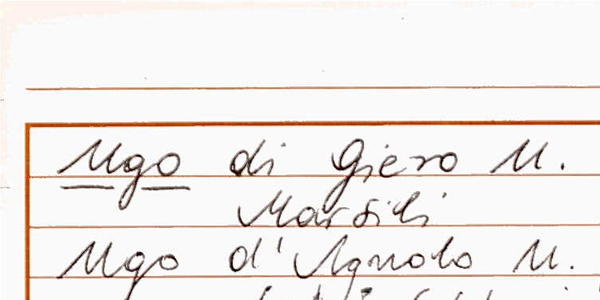 Ugo di Giero U.
Marsili
Ugo d'Agnolo U.